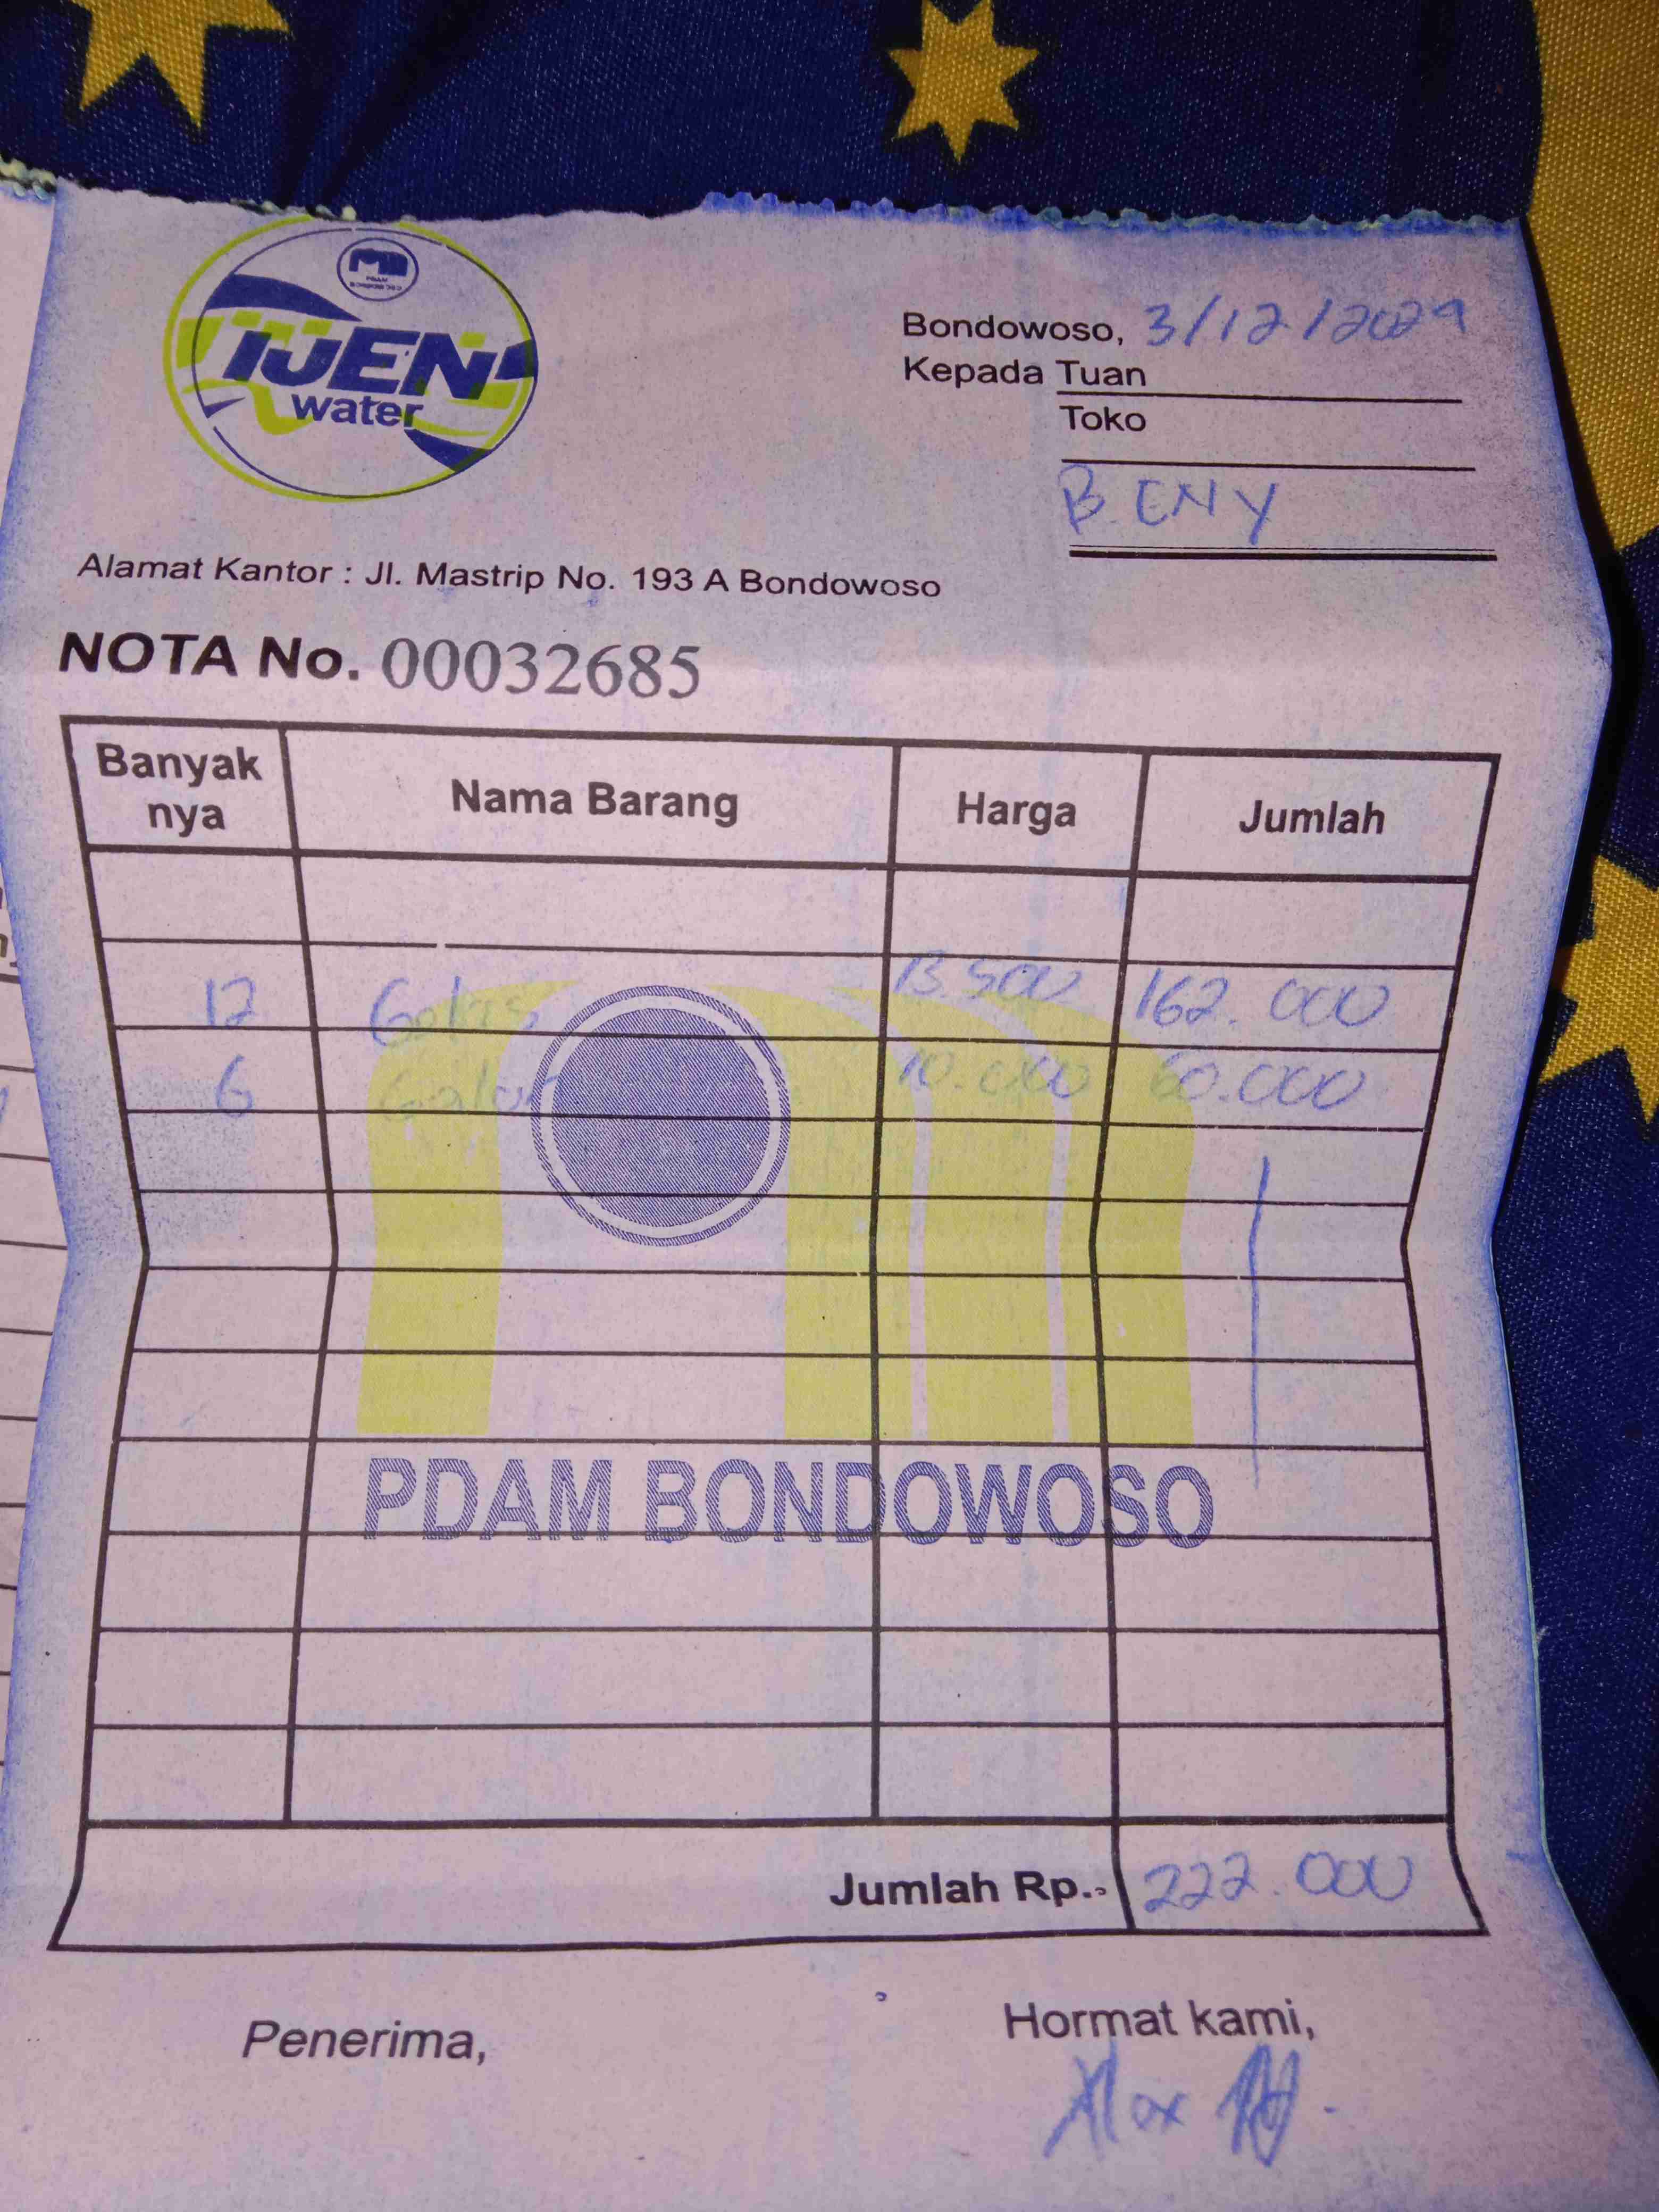 IJEN
water
Bondowoso, 3/12/2024
Kepada Tuan
Toko
B. ENY
Alamat Kantor : Jl. Mastrip No. 193 A Bondowoso
NOTA No. 00032685
Banyak nya Nama Barang Harga Jumlah
12 Gelas 13.500 162.000
6 Galon 10.000 60.000
PDAM BONDOWOSO
Jumlah Rp. 222.000
Penerima, Hormat kami,
Alex